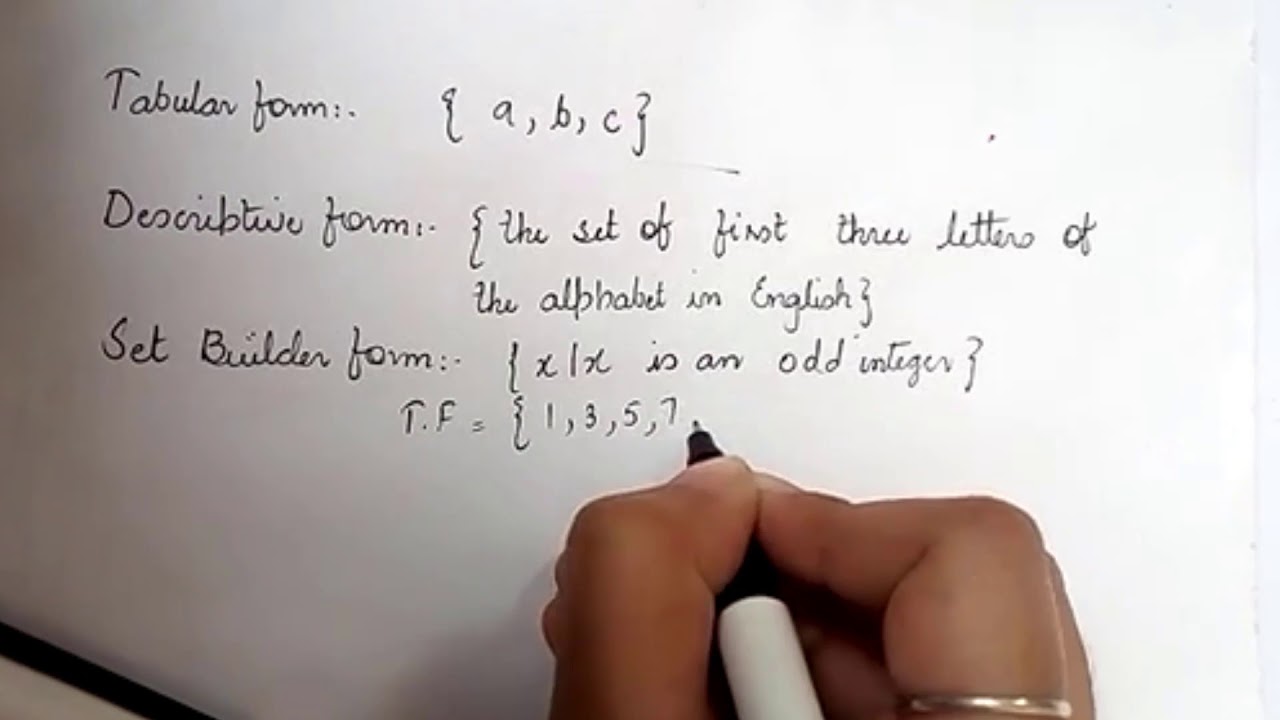 Tabular form:. { a, b, c}
Descriptive form:. {the set of first three letters of
the alphabet in English}
Set Builder form:. {x|x is an odd integer}
T.F = { 1, 3, 5, 7